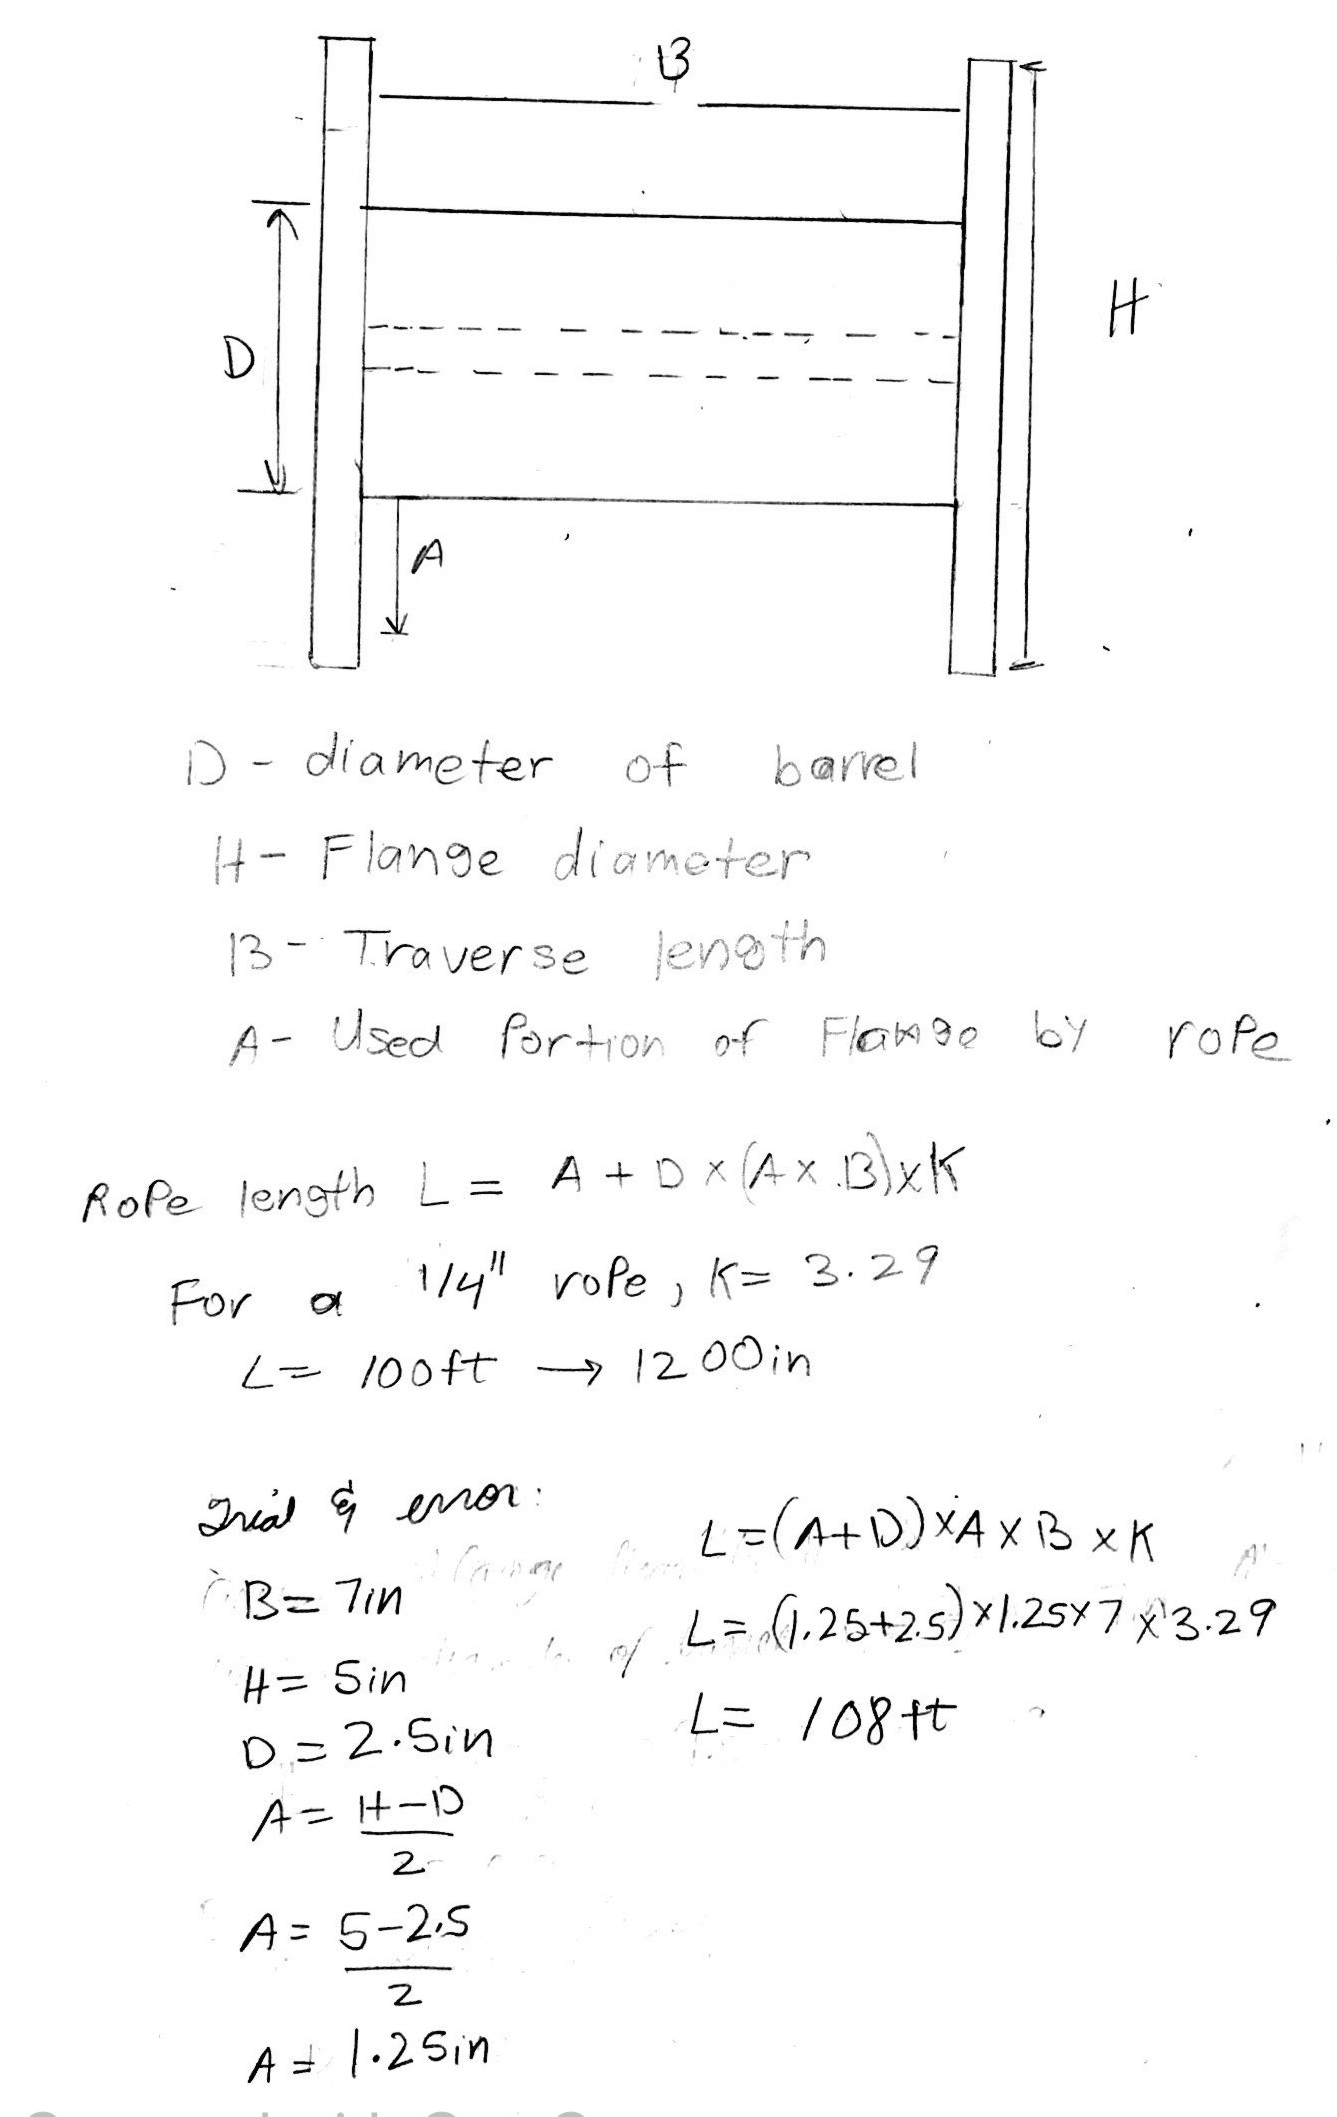 B
D
H
A
D - diameter of barrel
H - Flange diameter
B - Traverse length
A - Used Portion of Flange by rope
Rope length L = A + D × (A × B) × K
For a 1/4" rope, K = 3.29
L = 100ft → 1200in
Trial & error:
B = 7in
H = 5in
D = 2.5in
A = H-D
2
A = 5-2.5
2
A = 1.25in
L = (A+D) × A × B × K
L = (1.25+2.5) × 1.25 × 7 × 3.29
L = 108ft